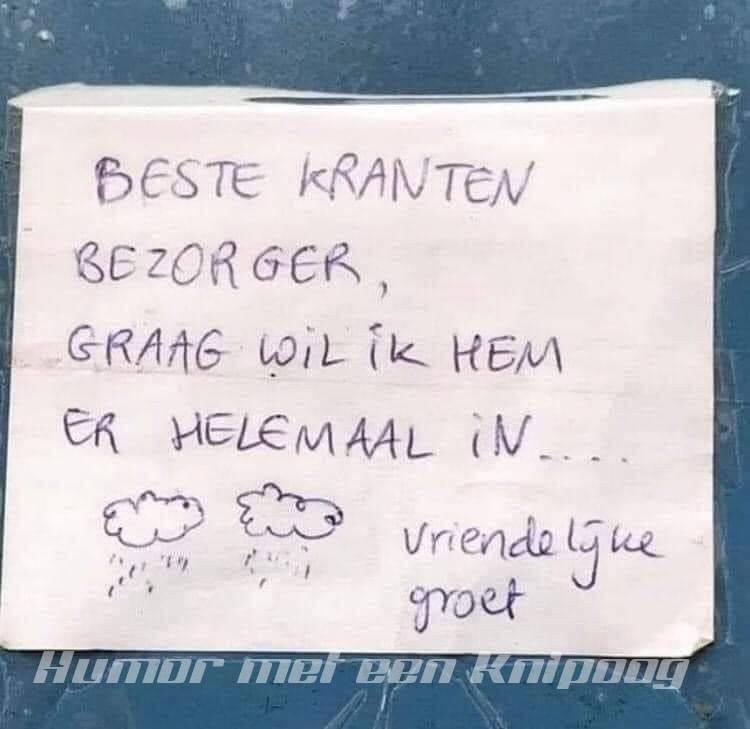 BESTE KRANTEN
BEZORGER,
GRAAG WIL IK HEM
ER HELEMAAL IN....
vriendelijke
groet
Humor met een Knipoog